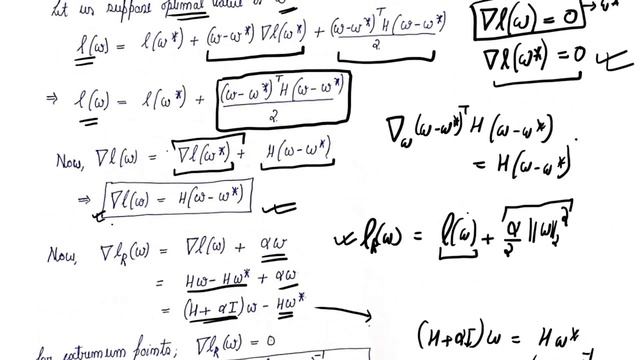 Let us suppose optimal value of
l(ω) = l(ω*) + (ω-ω*)∇l(ω*) + (ω-ω*)ᵀH(ω-ω*)/2
⇒ l(ω) = l(ω*) + (ω-ω*)ᵀH(ω-ω*)/2
Now, ∇l(ω) = ∇l(ω*) + H(ω-ω*)
⇒ ∇l(ω) = H(ω-ω*)
Now, ∇l_R(ω) = ∇l(ω) + αω
= Hω-Hω* + αω
= (H+αI)ω - Hω*
for extremum points; ∇l_R(ω) = 0
∇l(ω) = 0 → ω*
∇l(ω*) = 0
∇_ω (ω-ω*)ᵀH(ω-ω*)
= H(ω-ω*)
l_R(ω) = l(ω) + α/2 ||ω||₂²
(H+αI)ω = Hω*